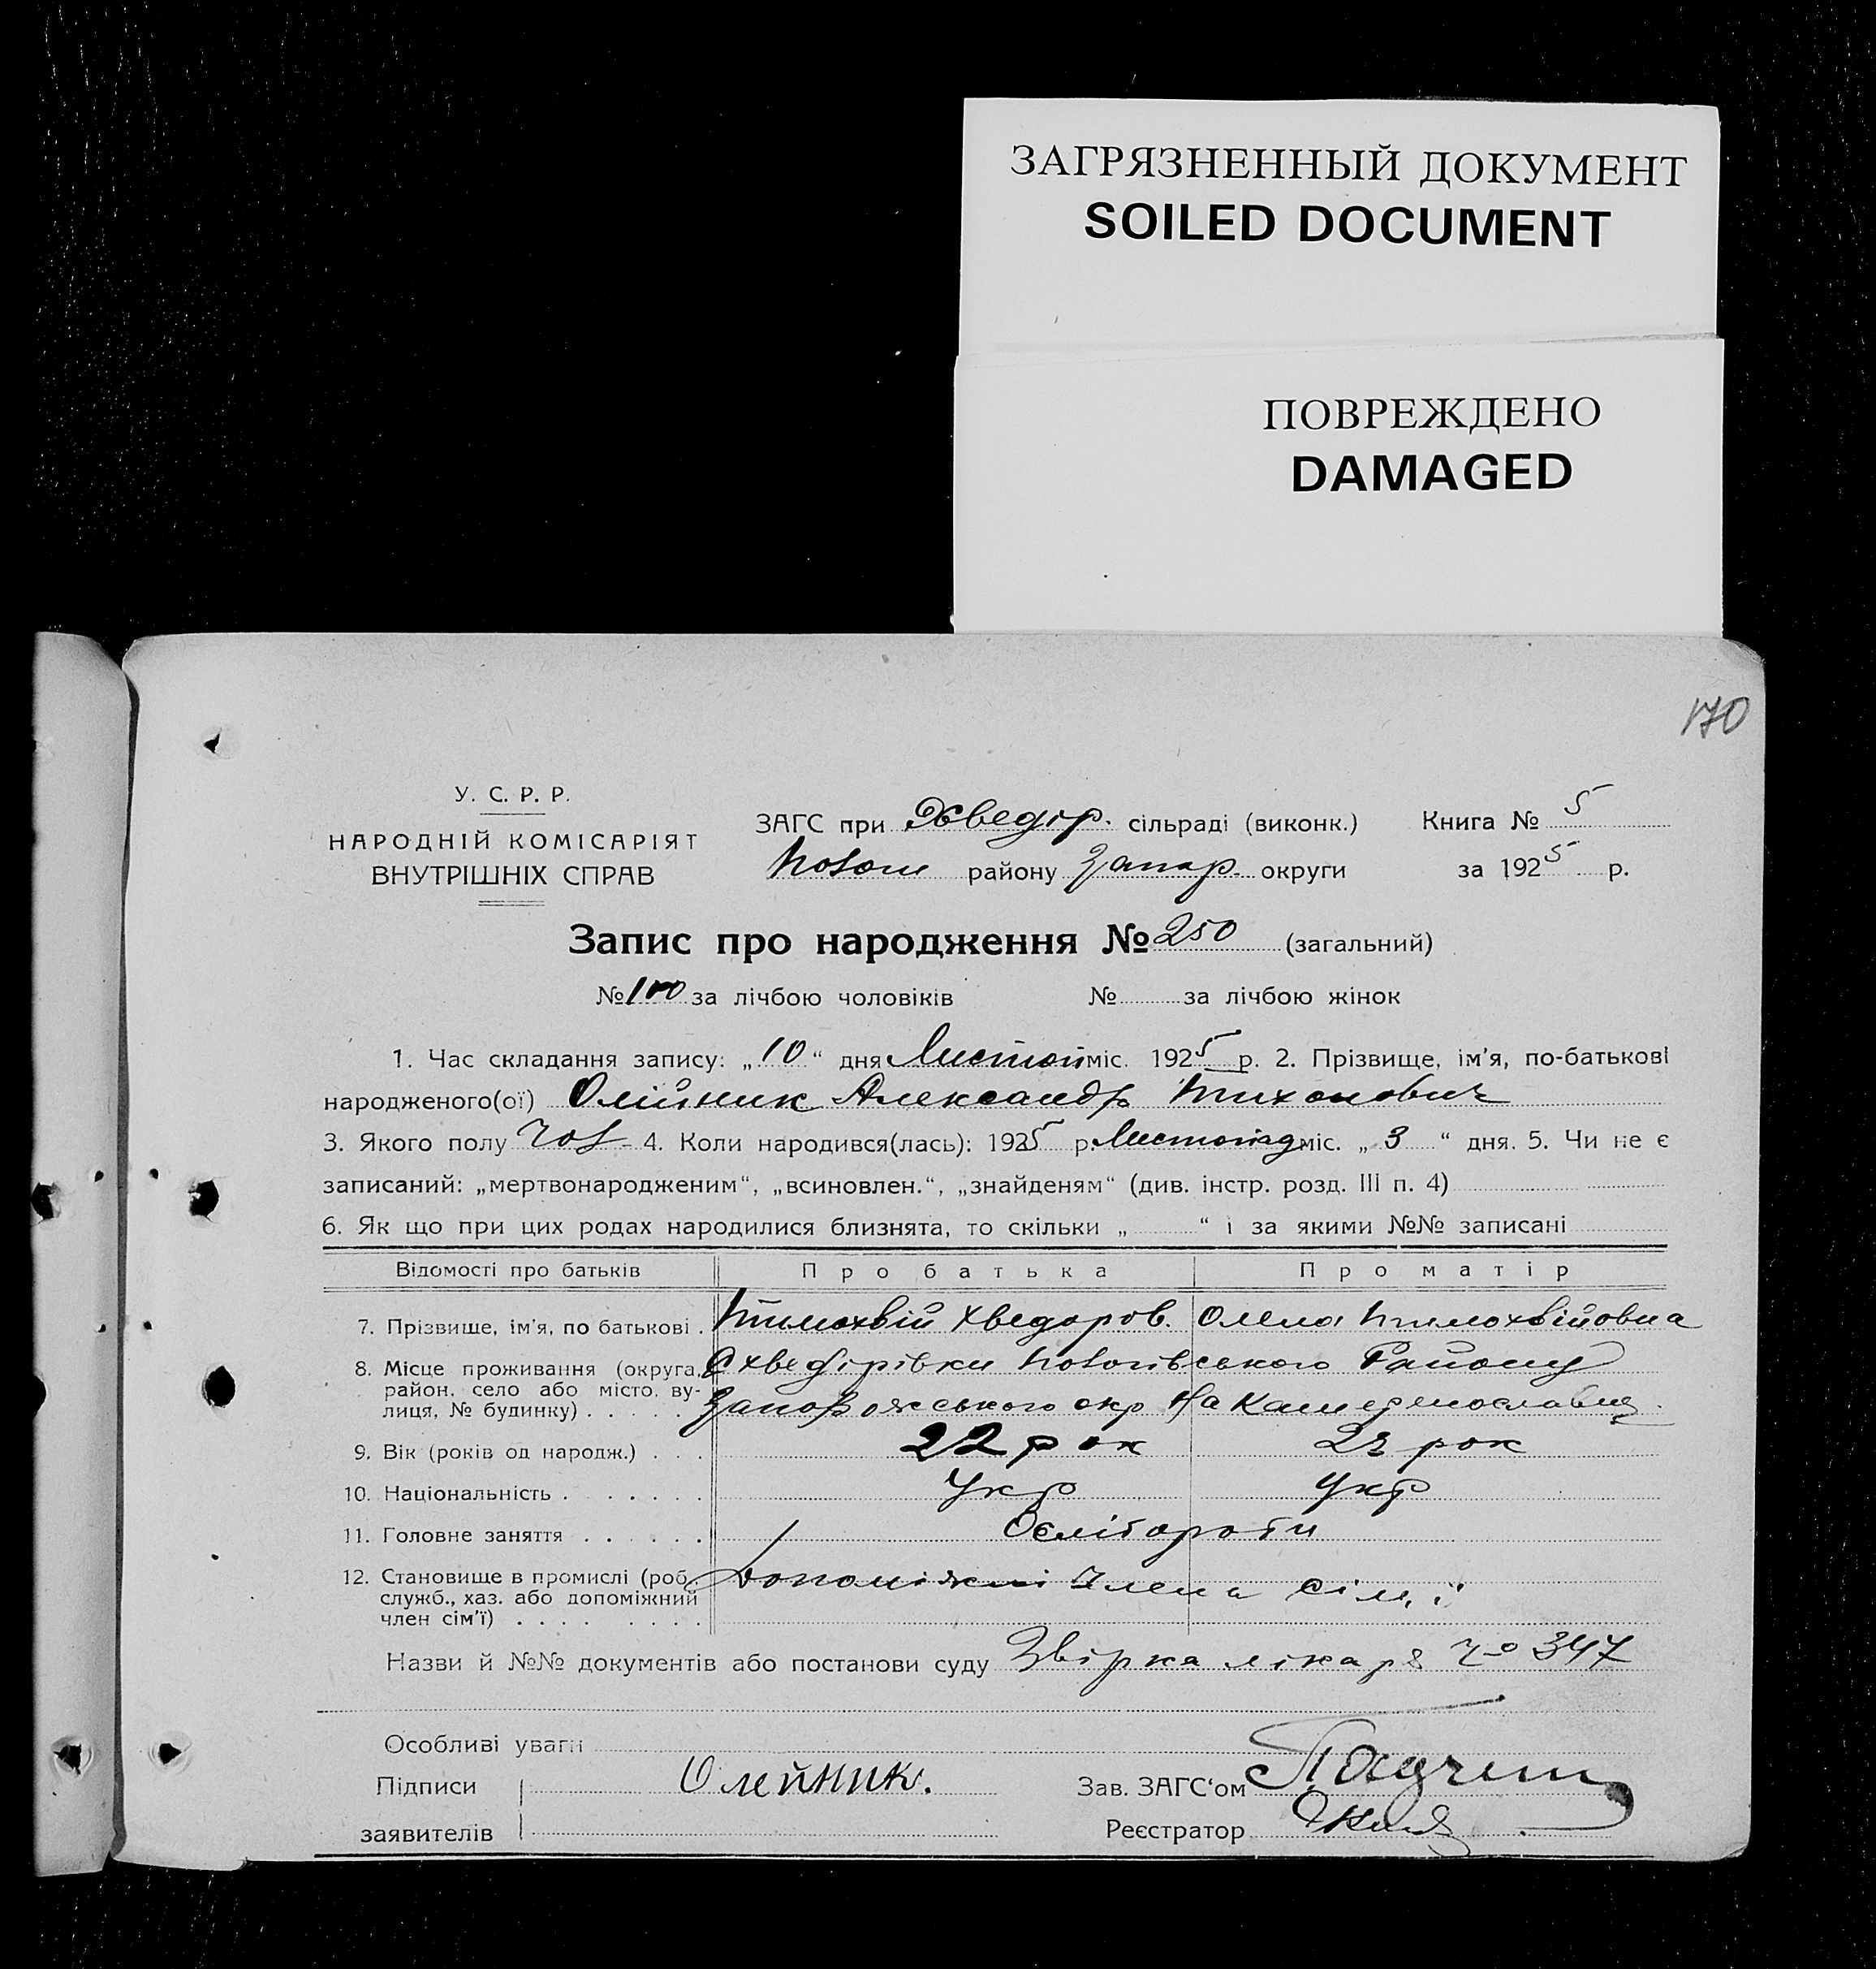 ЗАГРЯЗНЕННЫЙ ДОКУМЕНТ
SOILED DOCUMENT
ПОВРЕЖДЕНО
DAMAGED
170
У. С. Р. Р.
НАРОДНІЙ КОМІСАРІЯТ
ВНУТРІШНІХ СПРАВ
ЗАГС при Хведір. сільраді (виконк.) Книга № 5
району Запор. округи за 1925 р.
Запис про народження № 250 (загальний)
№ 100 за лічбою чоловіків № за лічбою жінок
1. Час складання запису: „10“ дня Листоп міс. 1925 р. 2. Прізвище, ім'я, по-батькові
народженого(ої) Олійник Александр Тихонович
3. Якого полу чол 4. Коли народився(лась): 1925 р. Листопад міс. „3“ дня. 5. Чи не є
записаний: „мертвонародженим“, „всиновлен.“, „знайденям“ (див. інстр. розд. III п. 4)
6. Як що при цих родах народилися близнята, то скільки „ “ і за якими №№ записані
Відомості про батьків Про батька Про матір
7. Прізвище, ім'я, по батькові . Тимохвій Хведоров. Олена Тимохвійовна
8. Місце проживання (округа, С Хведірівки району
район, село або місто, ву-
лиця, № будинку) . . . . . Запорожського окр На
9. Вік (років од народж.) . . . 22 рок 22 рок
10. Національність . . . . . . . Укр Укр
11. Головне заняття . . . . . .
12. Становище в промислі (роб., Допоміжні Члена сім'ї
служб., хаз. або допоміжний
член сім'ї) . . . . . . . .
Назви й №№ документів або постанови суду лікаря № 347
Особливі уваги
Підписи Олейник. Зав. ЗАГС‘ом
заявителів Реєстратор